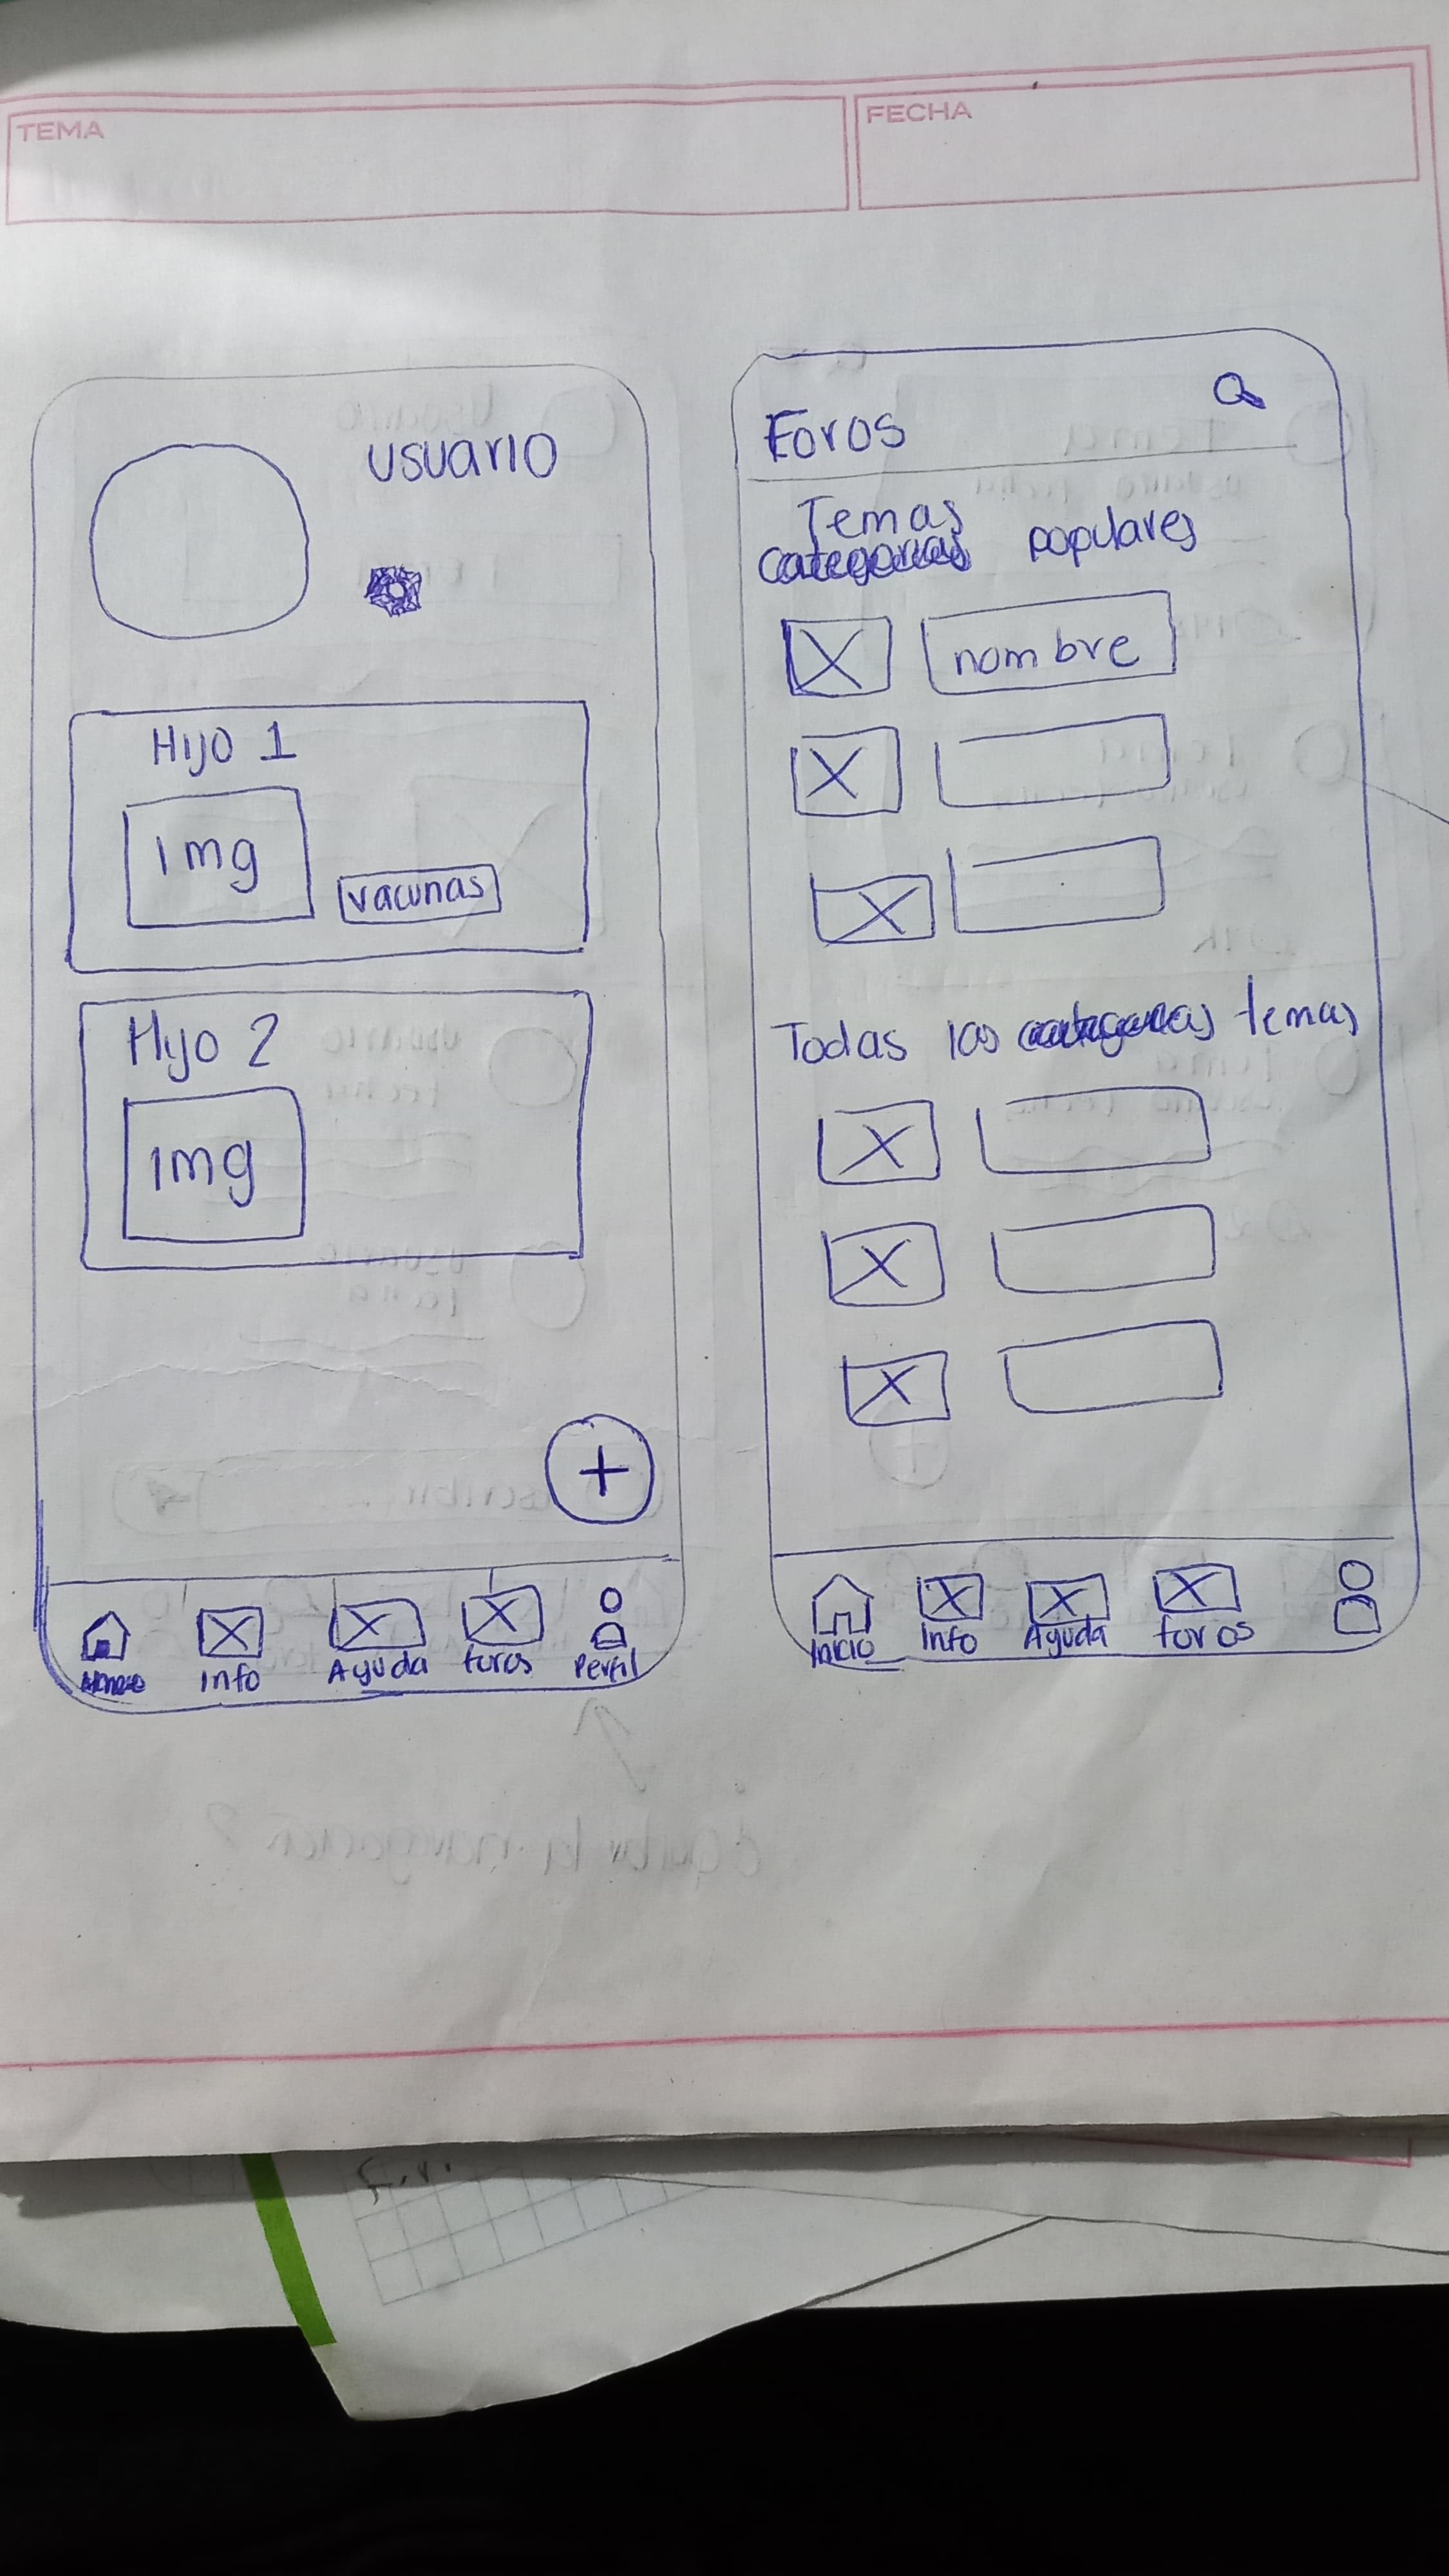 TEMA
FECHA
usuario
Hijo 1
img
vacunas
Hijo 2
img
+
Info
Ayuda
foros
Perfil
Foros
Temas
populares
nombre
Todas las temas
Inicio
Info
Ayuda
foros